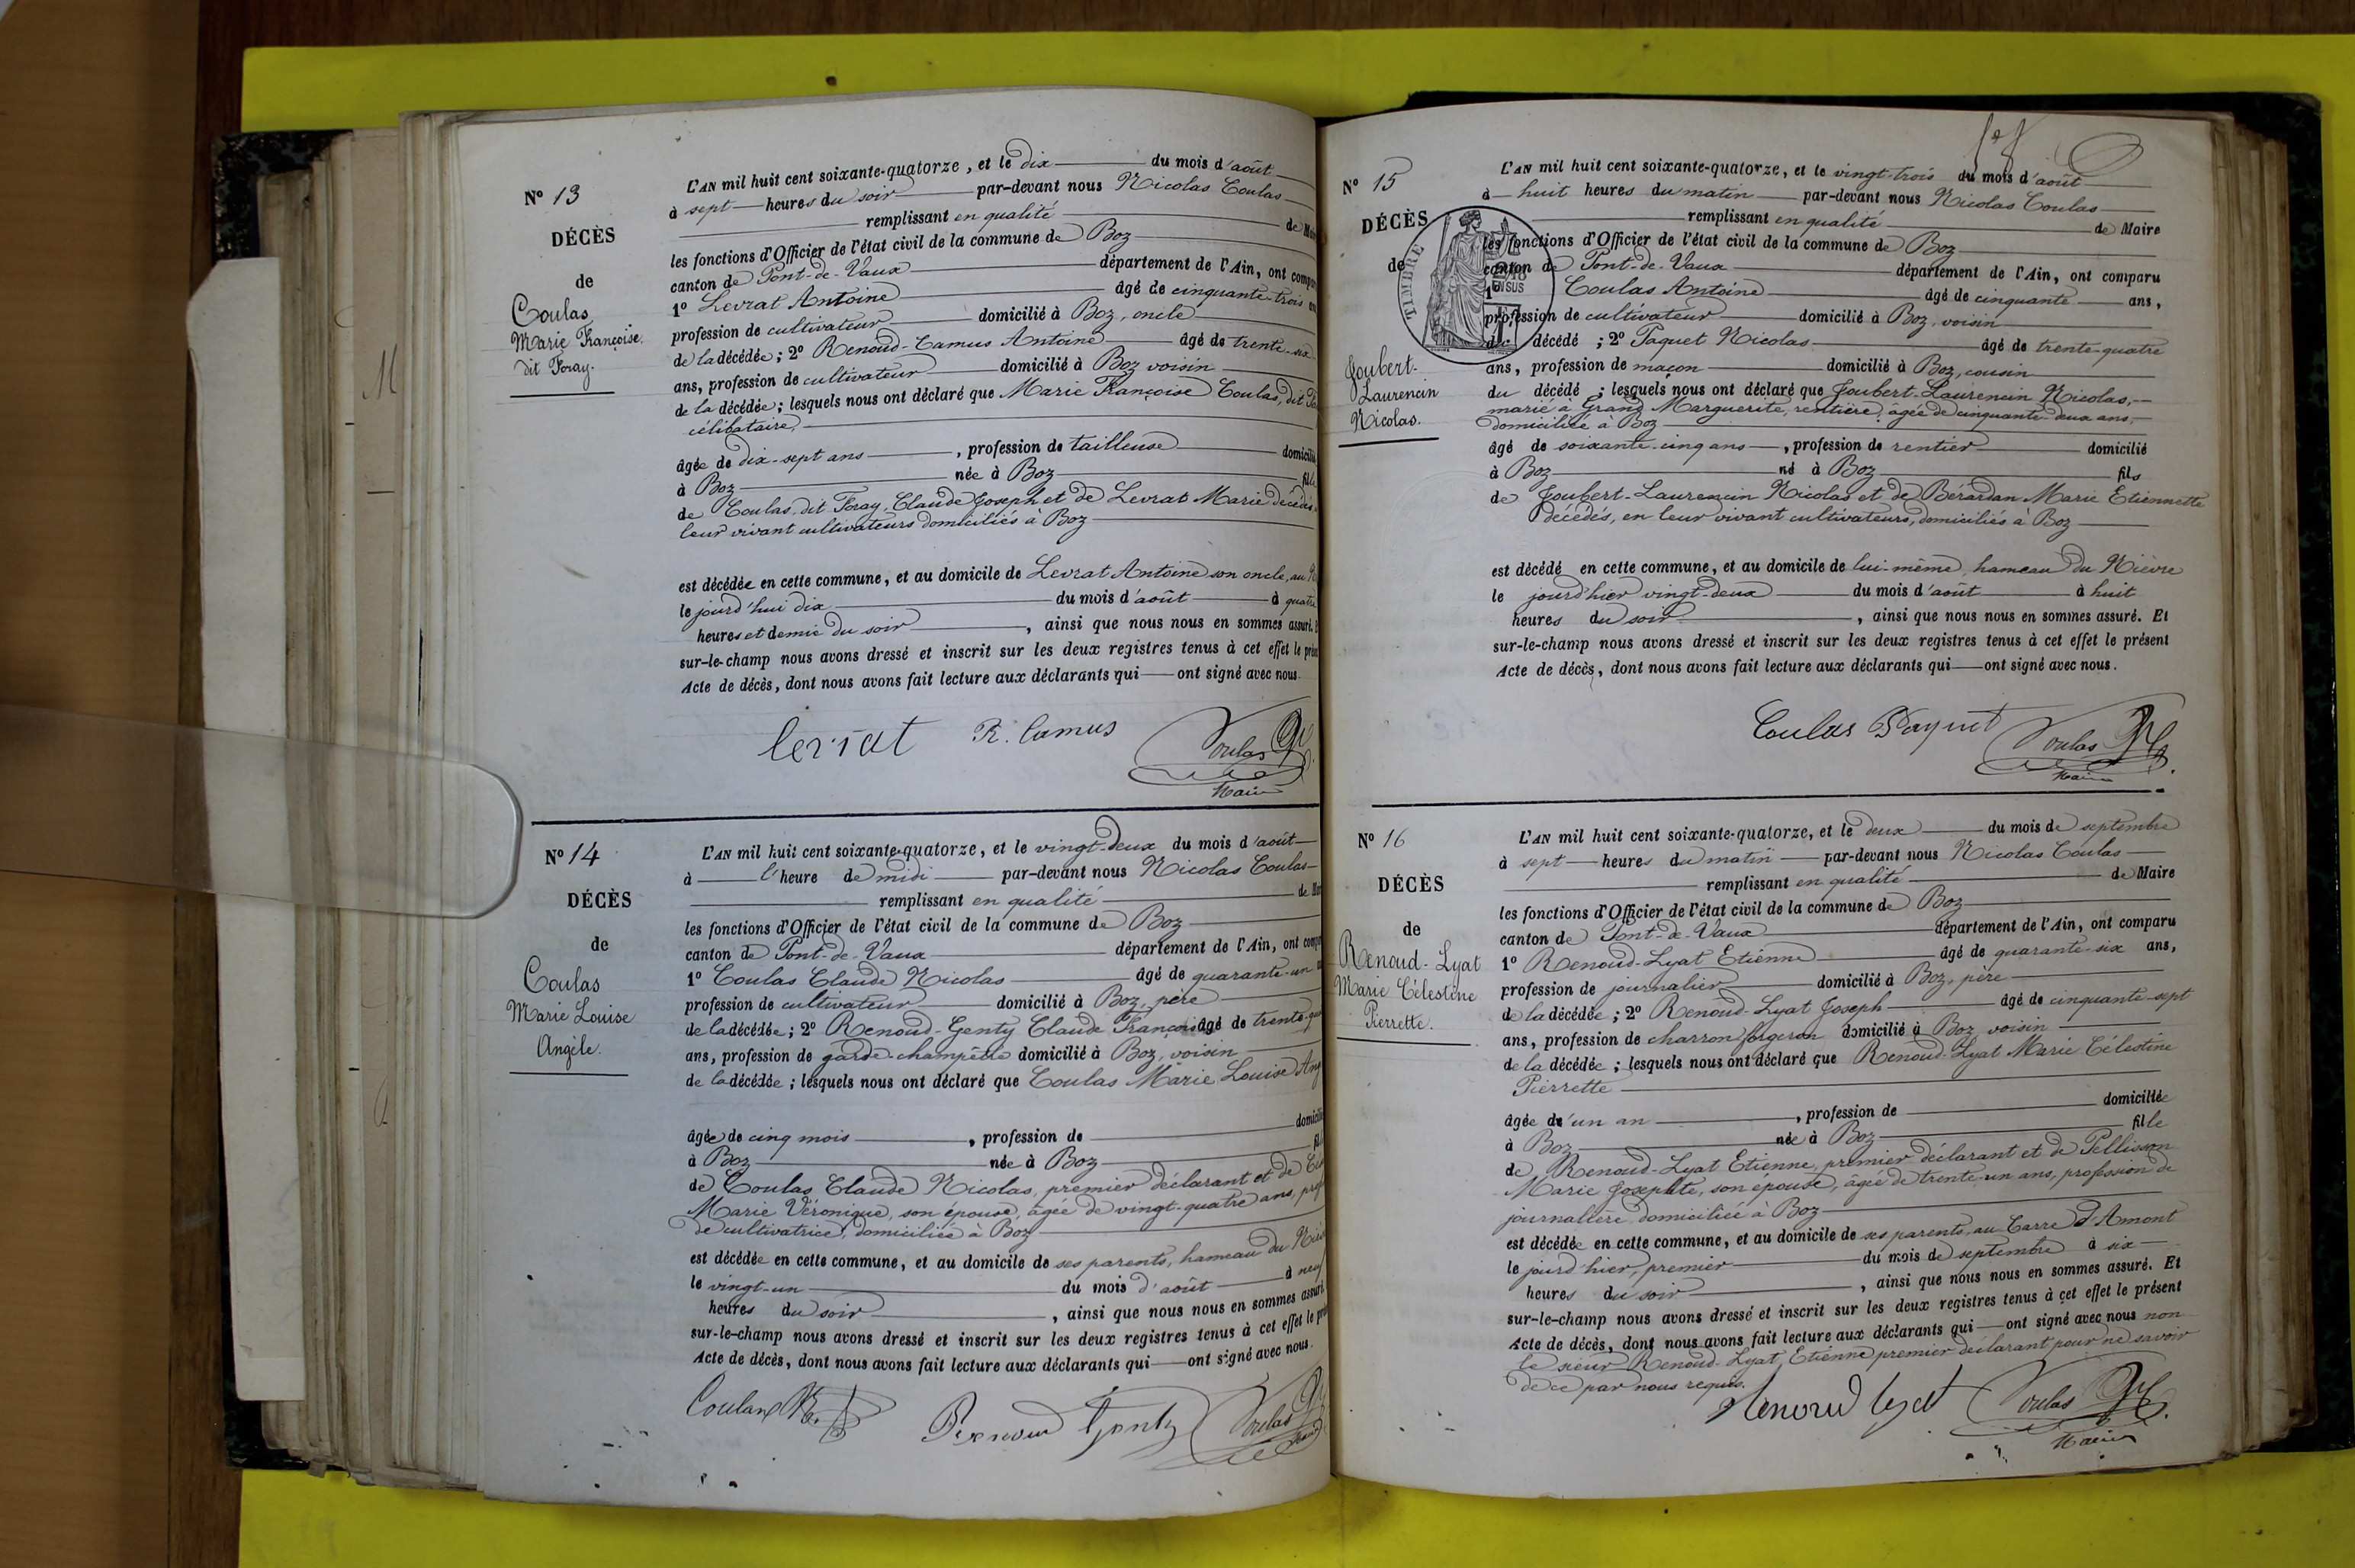 N° 13
DÉCÈS
de
Coulas
Marie Françoise.
dit Foray.
L'AN mil huit cent soixante-quatorze, et le dix du mois d'août
à sept heures du soir par-devant nous Nicolas Coulas
remplissant en qualité de
les fonctions d'Officier de l'état civil de la commune de Boz
canton de Pont-de-Vaux département de l'Ain, ont
1° Levrat Antoine âgé de cinquante-trois
profession de cultivateur domicilié à Boz, oncle
de la décédée; 2° Renoud-Camus Antoine âgé de trente-six
ans, profession de cultivateur domicilié à Boz voisin
de la décédée; lesquels nous ont déclaré que Marie Françoise Coulas, dit
célibataire,
âgée de dix-sept ans, profession de tailleuse
à Boz née à Boz
de Coulas, dit Foray, Claude Joseph et de Levrat Marie
leur vivant cultivateurs domiciliés à Boz
est décédée en cette commune, et au domicile de Levrat Antoine son oncle, au
le jourd'hui dix du mois d'août à quatre
heures et demie du soir, ainsi que nous nous en sommes assuré.
sur-le-champ nous avons dressé et inscrit sur les deux registres tenus à cet effet le
Acte de décès, dont nous avons fait lecture aux déclarants qui ont signé avec nous.
levrat R. Camus Coulas
Maire
N° 14
DÉCÈS
de
Coulas
Marie Louise
Angèle.
L'AN mil huit cent soixante-quatorze, et le vingt-deux du mois d'août
à l'heure de midi par-devant nous Nicolas Coulas
remplissant en qualité de
les fonctions d'Officier de l'état civil de la commune de Boz
canton de Pont-de-Vaux département de l'Ain, ont
1° Coulas Claude Nicolas âgé de quarante-un
profession de cultivateur domicilié à Boz, père
de la décédée; 2° Renoud-Genty Claude François âgé de
ans, profession de garde-champêtre domicilié à Boz, voisin
de la décédée; lesquels nous ont déclaré que Coulas Marie Louise
âgée de cinq mois, profession de
à Boz née à Boz
de Coulas Claude Nicolas, premier déclarant et de
Marie Véronique, son épouse, âgée de vingt-quatre ans,
de cultivatrice, domiciliée à Boz
est décédée en cette commune, et au domicile de ses parents, hameau du
le vingt-un du mois d'août à
heures du soir, ainsi que nous nous en sommes
sur-le-champ nous avons dressé et inscrit sur les deux registres tenus à cet effet le
Acte de décès, dont nous avons fait lecture aux déclarants qui ont signé avec nous.
Coulas Renoud Genty Coulas
Maire
N° 15
DÉCÈS
de
Joubert-
Laurencin
Nicolas.
TIMBRE
L'AN mil huit cent soixante-quatorze, et le vingt-trois du mois d'août
à huit heures du matin par-devant nous Nicolas Coulas
remplissant en qualité de Maire
les fonctions d'Officier de l'état civil de la commune de Boz
canton de Pont-de-Vaux département de l'Ain, ont comparu
1° Coulas Antoine âgé de cinquante ans,
profession de cultivateur domicilié à Boz, voisin
du décédé; 2° Paquet Nicolas âgé de trente-quatre
ans, profession de maçon domicilié à Boz, cousin
du décédé; lesquels nous ont déclaré que Joubert-Laurencin Nicolas,
marié à Grand Marguerite, rentière, âgée de cinquante-deux ans,
domiciliée à Boz
âgé de soixante-cinq ans, profession de rentier domicilié
à Boz né à Boz fils
de Joubert-Laurencin Nicolas et de Bérardan Marie Etiennette
décédés, en leur vivant cultivateurs, domiciliés à Boz
est décédé en cette commune, et au domicile de lui-même, hameau du Nièvre
le jourd'hier vingt-deux du mois d'août à huit
heures du soir, ainsi que nous nous en sommes assuré. Et
sur-le-champ nous avons dressé et inscrit sur les deux registres tenus à cet effet le présent
Acte de décès, dont nous avons fait lecture aux déclarants qui ont signé avec nous.
Coulas Paquet Coulas
Maire
N° 16
DÉCÈS
de
Renoud-Lyat
Marie Célestine
Pierrette.
L'AN mil huit cent soixante-quatorze, et le deux du mois de septembre
à sept heures du matin par-devant nous Nicolas Coulas
remplissant en qualité de Maire
les fonctions d'Officier de l'état civil de la commune de Boz
canton de Pont-de-Vaux département de l'Ain, ont comparu
1° Renoud-Lyat Etienne âgé de quarante-six ans,
profession de journalier domicilié à Boz, père
de la décédée; 2° Renoud-Lyat Joseph âgé de cinquante-sept
ans, profession de charron forgeron domicilié à Boz voisin
de la décédée; lesquels nous ont déclaré que Renoud-Lyat Marie Célestine
Pierrette
âgée d'un an, profession de domiciliée
à Boz née à Boz fille
de Renoud-Lyat Etienne, premier déclarant et de Pellisson
Marie Josephte, son épouse, âgée de trente-un ans, profession de
journalière domiciliée à Boz
est décédée en cette commune, et au domicile de ses parents, au Carre d'Amont
le jourd'hier, premier du mois de septembre à six
heures du soir, ainsi que nous nous en sommes assuré. Et
sur-le-champ nous avons dressé et inscrit sur les deux registres tenus à cet effet le présent
Acte de décès, dont nous avons fait lecture aux déclarants qui ont signé avec nous non
le sieur Renoud-Lyat Etienne premier déclarant pour ne savoir
de ce par nous requis.
Renoud lyat Coulas
Maire